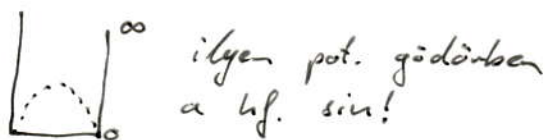 ∞
ilyen pot. gödörben
a hf. sin!
0